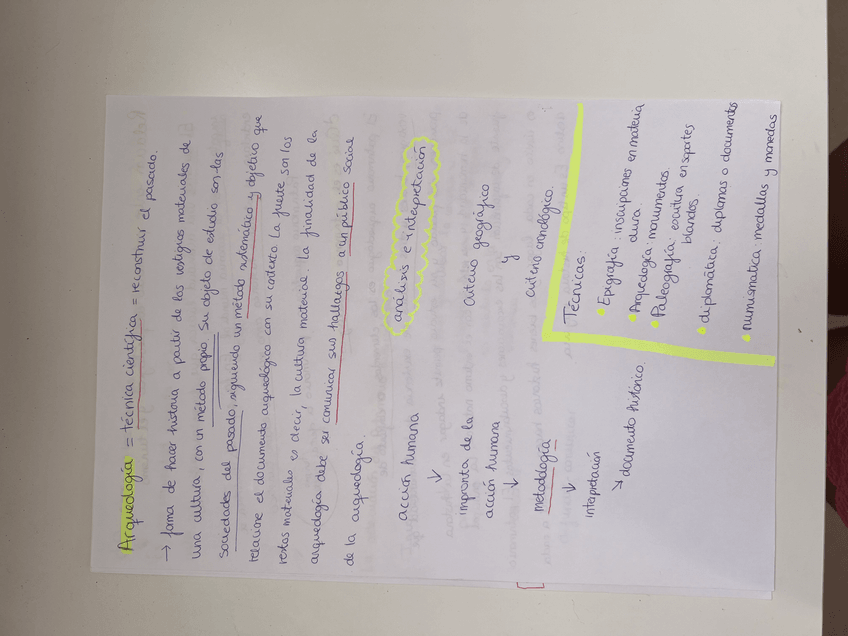 Arqueología = técnica científica = reconstruir el pasado.
→ forma de hacer historia a partir de los vestigios materiales de
una cultura, con un método propio. Su objeto de estudio son las
sociedades del pasado, siguiendo un método sistemático y objetivo que
relacione el documento arqueológico con su contexto. La fuente son los
restos materiales es decir, la cultura material. La finalidad de la
arqueología debe ser comunicar sus hallazgos a un público social
de la arqueología.
análisis e interpretación
acción humana
↓
impronta de la
acción humana
↓
metodología
↓
interpretación
↘ documento histórico.
criterio geográfico
y
criterio cronológico.
Técnicas:
• Epigrafía: inscripciones en materia
dura.
• Arqueología: monumentos.
• Paleografía: escritura en soportes
blandos.
• diplomática: diplomas o documentos
• numismatica: medallas y monedas